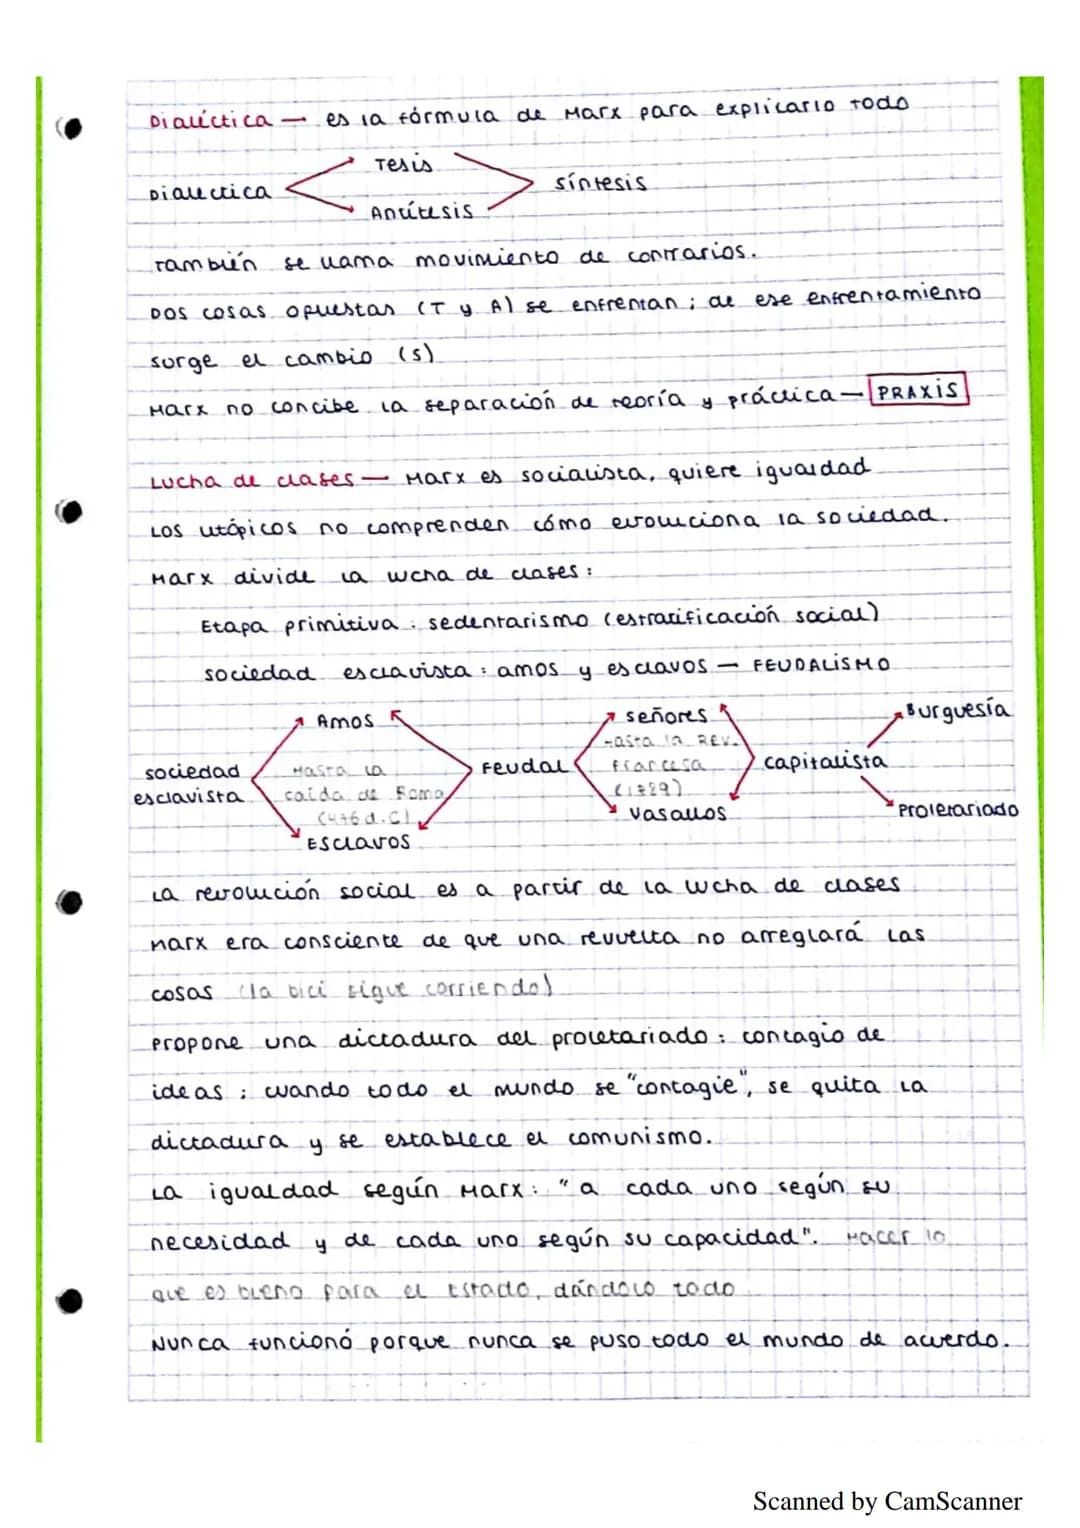 Dialéctica — es la fórmula de Marx para explicarlo todo
Tesis
Dialectica
síntesis
Antítesis
También se llama movimiento de contrarios.
Dos cosas opuestas (T y A) se enfrentan; de ese enfrentamiento
surge el cambio (s)
Marx no concibe la separación de teoría y práctica — PRAXIS
Lucha de clases — Marx es socialista, quiere igualdad
Los utópicos no comprenden cómo evoluciona la sociedad.
Marx divide la lucha de clases:
Etapa primitiva: sedentarismo (estratificación social)
sociedad esclavista: amos y esclavos — FEUDALISMO
Amos
señores
Burguesía
Hasta la Rev.
sociedad
Hasta la
Feudal
francesa
capitalista
esclavista
caída de Roma
(1789)
(476 d.C)
vasallos
Proletariado
Esclavos
La revolución social es a partir de la lucha de clases
Marx era consciente de que una revuelta no arreglará las
cosas (la bici sigue corriendo)
Propone una dictadura del proletariado: contagio de
ideas; cuando todo el mundo se "contagie", se quita la
dictadura y se establece el comunismo.
La igualdad según Marx: "a cada uno según su
necesidad y de cada uno según su capacidad". Hacer lo
que es bueno para el Estado, dándolo todo
Nunca funcionó porque nunca se puso todo el mundo de acuerdo.
Scanned by CamScanner